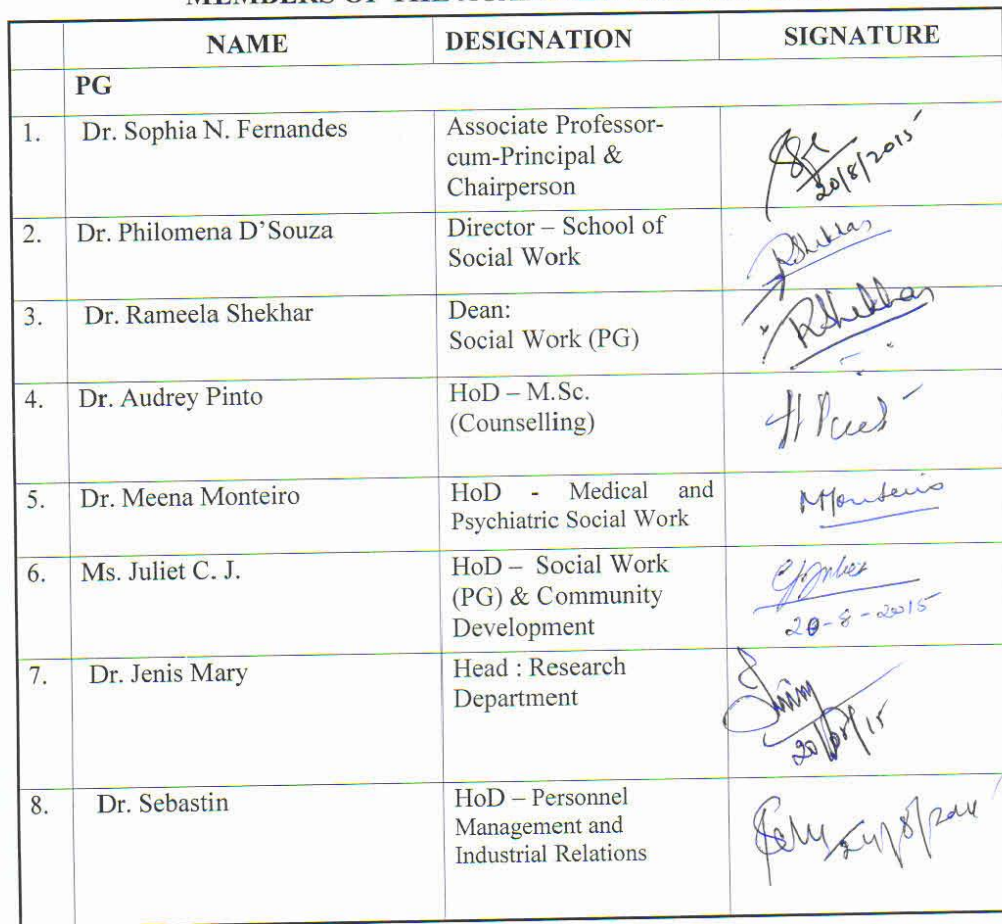 MEMBERS OF THE
NAME DESIGNATION SIGNATURE
PG
1. Dr. Sophia N. Fernandes Associate Professor-
cum-Principal &
Chairperson
20/8/2015
2. Dr. Philomena D'Souza Director – School of
Social Work
RShekhar
3. Dr. Rameela Shekhar Dean:
Social Work (PG)
RShekhar
4. Dr. Audrey Pinto HoD – M.Sc.
(Counselling)
5. Dr. Meena Monteiro HoD - Medical and
Psychiatric Social Work
MMonteiro
6. Ms. Juliet C. J. HoD – Social Work
(PG) & Community
Development
CJJuliet
20-8-2015
7. Dr. Jenis Mary Head : Research
Department
20/08/15
8. Dr. Sebastin HoD – Personnel
Management and
Industrial Relations